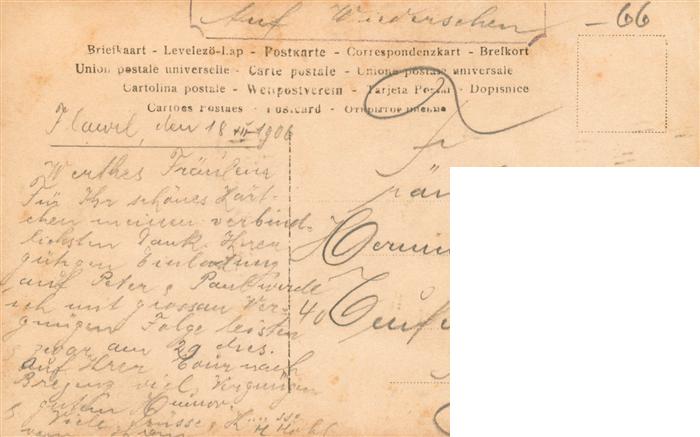 Auf Wiedersehen
- 66
Briefkaart - Levelező-Lap - Postkarte - Correspondenzkart - Brefkort
Union postale universelle - Carte postale - Unione postale universale
Cartolina postale - Weltpostverein - Tarjeta Postal - Dopisnice
Cartoes Postaes - Postcard - Открытое письмо
Flawil, den 18 VII 1906
Werthes Fräulein
Für Ihr schönes Kärt-
chen meinen verbind-
lichsten Dank. Ihrer
gütigen Einladung
auf Peter & Paul werde
ich mit grossem Ver-
gnügen Folge leisten
& zwar am 29 dies.
Auf Ihrer Tour nach
Bregenz viel Vergnügen
guten Humor.
& Viele Grüsse,
Fr
Hermin
40
Teufe